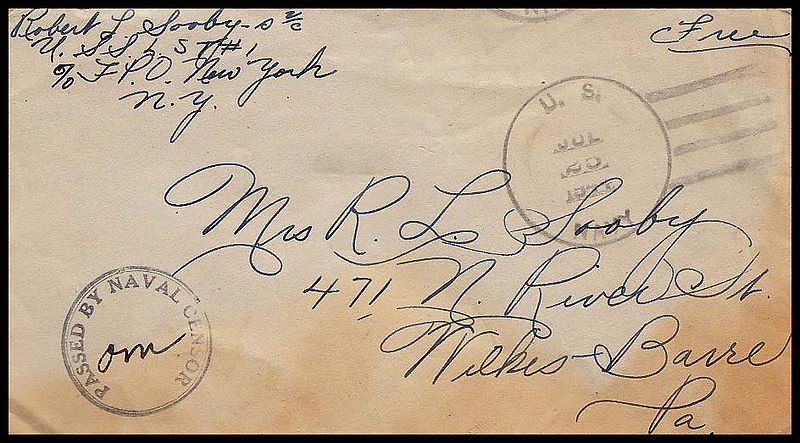 Robert L Sooby - S 2/c
U.S.S. L S T #1
% F.P.O. New York
N.Y.
Free
U. S.
JUL
NAVY
Mrs R. L. Sooby
471 N. River St.
Wilkes-Barre
Pa.
PASSED BY NAVAL CENSOR
om